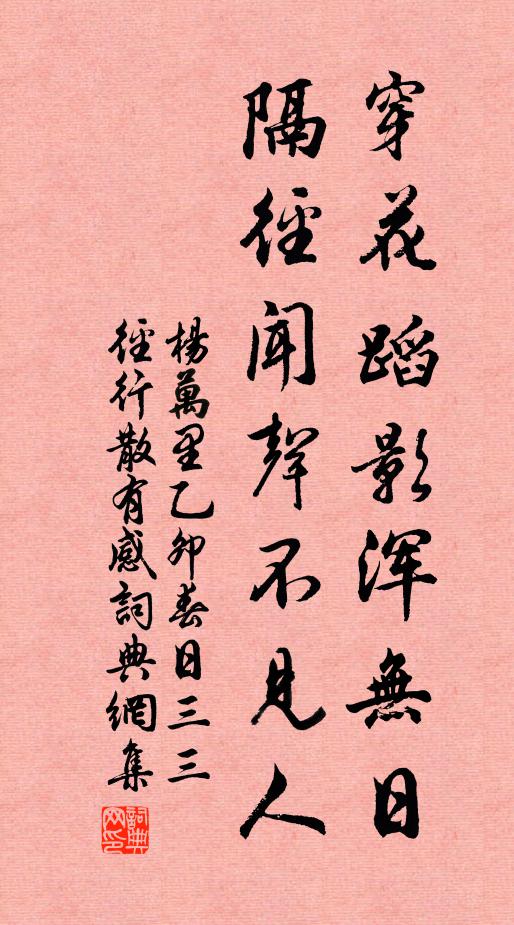 穿花蹈影浑無日
隔徑聞聲不見人
楊萬里乙卯春日三三
徑行散有感詞典網集
詞典
网印